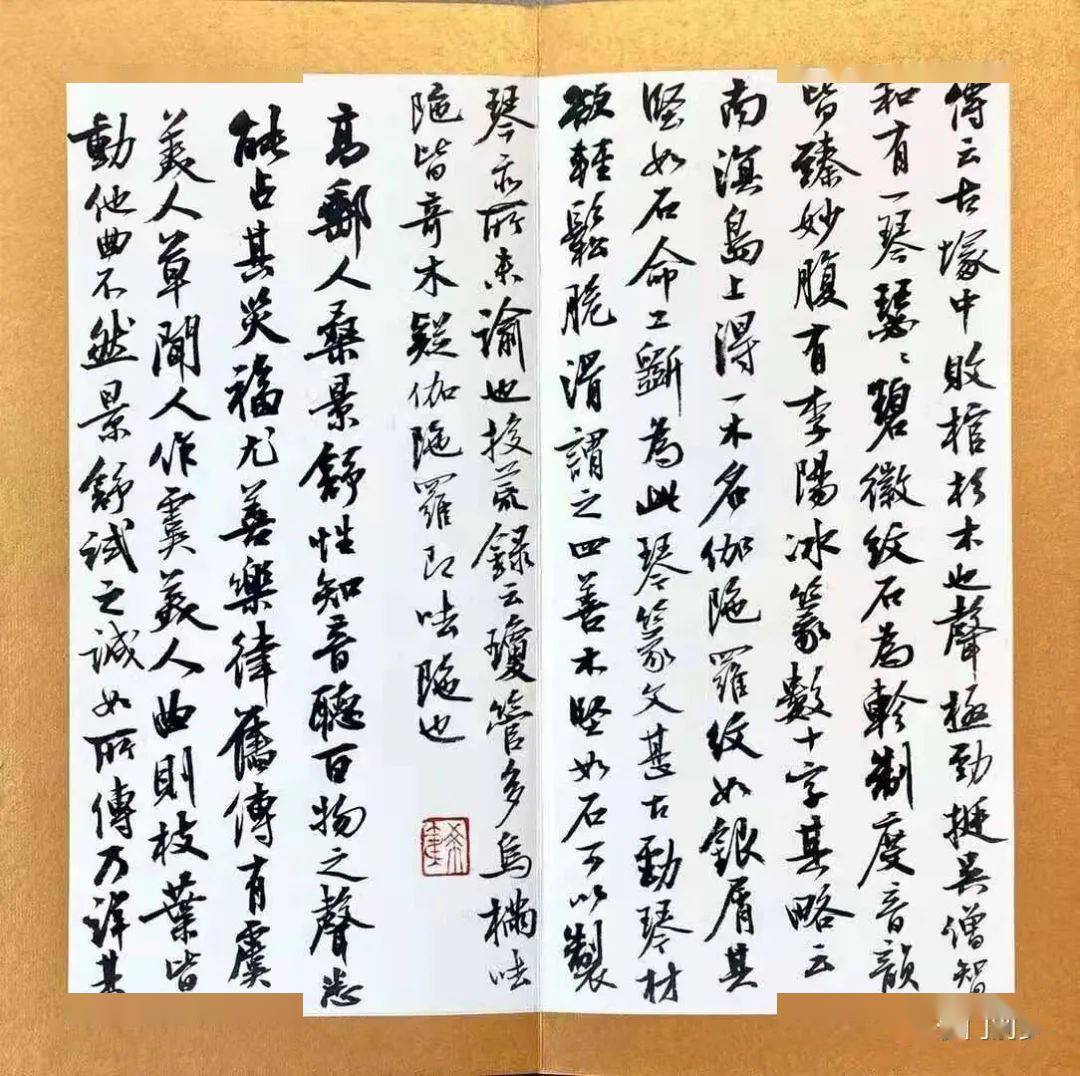 傳云古塚中敗棺杉木也聲極勁挺吳僧智
和有一琴瑟〻碧徽紋石為軫制度音韻
皆臻妙腹有李陽冰篆數十字其略云
南溟島上得一木名伽陁羅紋如銀屑其
堅如石命工斵為此琴篆文甚古勁琴材
欲輕鬆脆滑謂之四善木堅如石可以製
琴亦所未諭也投荒錄云瓊管多烏樠呿
陁皆奇木疑伽陁羅即呿陁也
高郵人桑景舒性知音聽百物之聲悉
能占其災福尤善樂律舊傳有虞
美人草聞人作虞美人曲則枝葉皆
動他曲不然景舒試之誠如所傳乃詳其